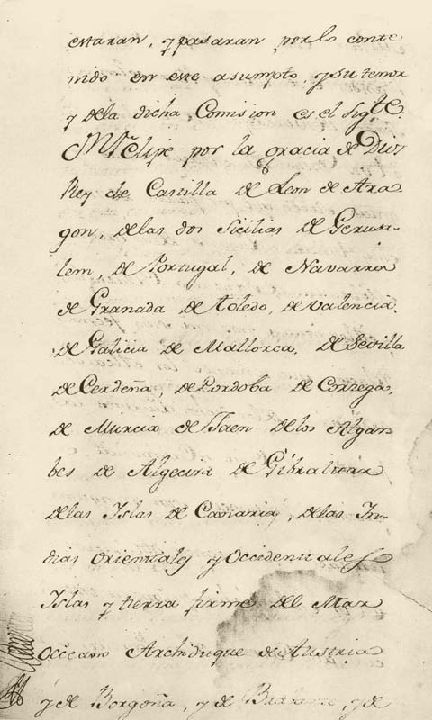 estaran, y pasaran por lo conte
nido en este asumpto, y su tenor
y dela dicha Comision es el sigte.
Phelipe por la gracia de Dios
Rey de Castilla de Leon de Ara
gon, delas dos Sicilias de Gerusa-
lem, de Portugal, de Navarra
de Granada de Toledo, de Valencia,
de Galicia de Mallorca, de Sevilla
de Cerdeña, de Cordoba de Corsega,
de Murcia de Jaen delos Algar
bes de Algecira de Gibraltar
delas Islas de Canaria, delas In-
dias orientales y occidentales
Islas y tierra firme del Mar
occeano Archiduque de Austria
y de Borgoña, y de Bravante, y de